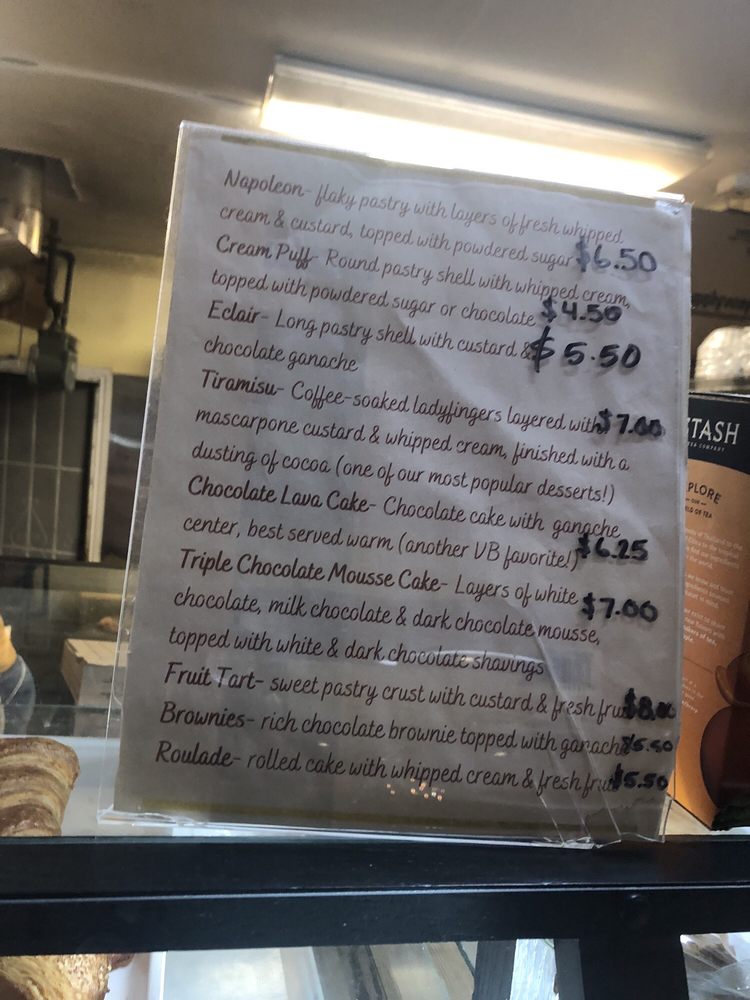 Napoleon- flaky pastry with layers of fresh whipped
cream & custard, topped with powdered sugar $6.50
Cream Puff- Round pastry shell with whipped cream,
topped with powdered sugar or chocolate $4.50
Eclair- Long pastry shell with custard & $5.50
chocolate ganache
Tiramisu- Coffee-soaked ladyfingers layered with $7.00
mascarpone custard & whipped cream, finished with a
dusting of cocoa (one of our most popular desserts!)
Chocolate Lava Cake- Chocolate cake with ganache
center, best served warm (another VB favorite!) $6.25
Triple Chocolate Mousse Cake- Layers of white $7.00
chocolate, milk chocolate & dark chocolate mousse,
topped with white & dark chocolate shavings
Fruit Tart- sweet pastry crust with custard & fresh fruit $8.00
Brownies- rich chocolate brownie topped with ganache $5.50
Roulade- rolled cake with whipped cream & fresh fruit $5.50
STASH
TEA COMPANY
PLORE
OUR
LD OF TEA